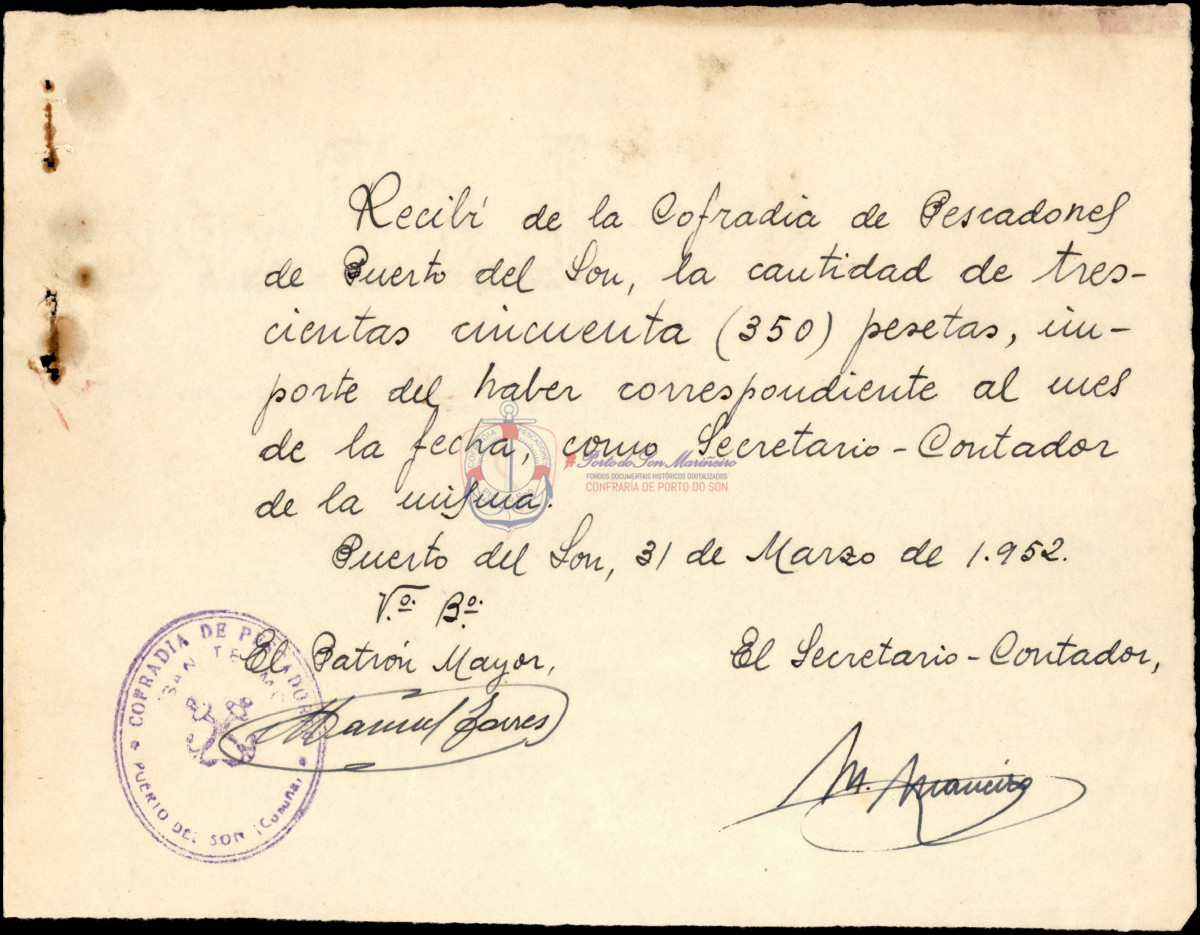 Recibí de la Cofradia de Pescadores
de Puerto del Son, la cantidad de tres-
cientas cincuenta (350) pesetas, im-
porte del haber correspondiente al mes
de la fecha, como Secretario-Contador
de la misma.
#Porto do Son Mariñeiro
FONDOS DOCUMENTAIS HISTÓRICOS DIXITALIZADOS
CONFRARÍA DE PORTO DO SON
Puerto del Son, 31 de Marzo de 1.952.
V.º B.º
El Patrón Mayor,
El Secretario-Contador,
COFRADIA DE PESCADORES
SAN TELMO
PUERTO DEL SON (Coruña)
Manuel
M.